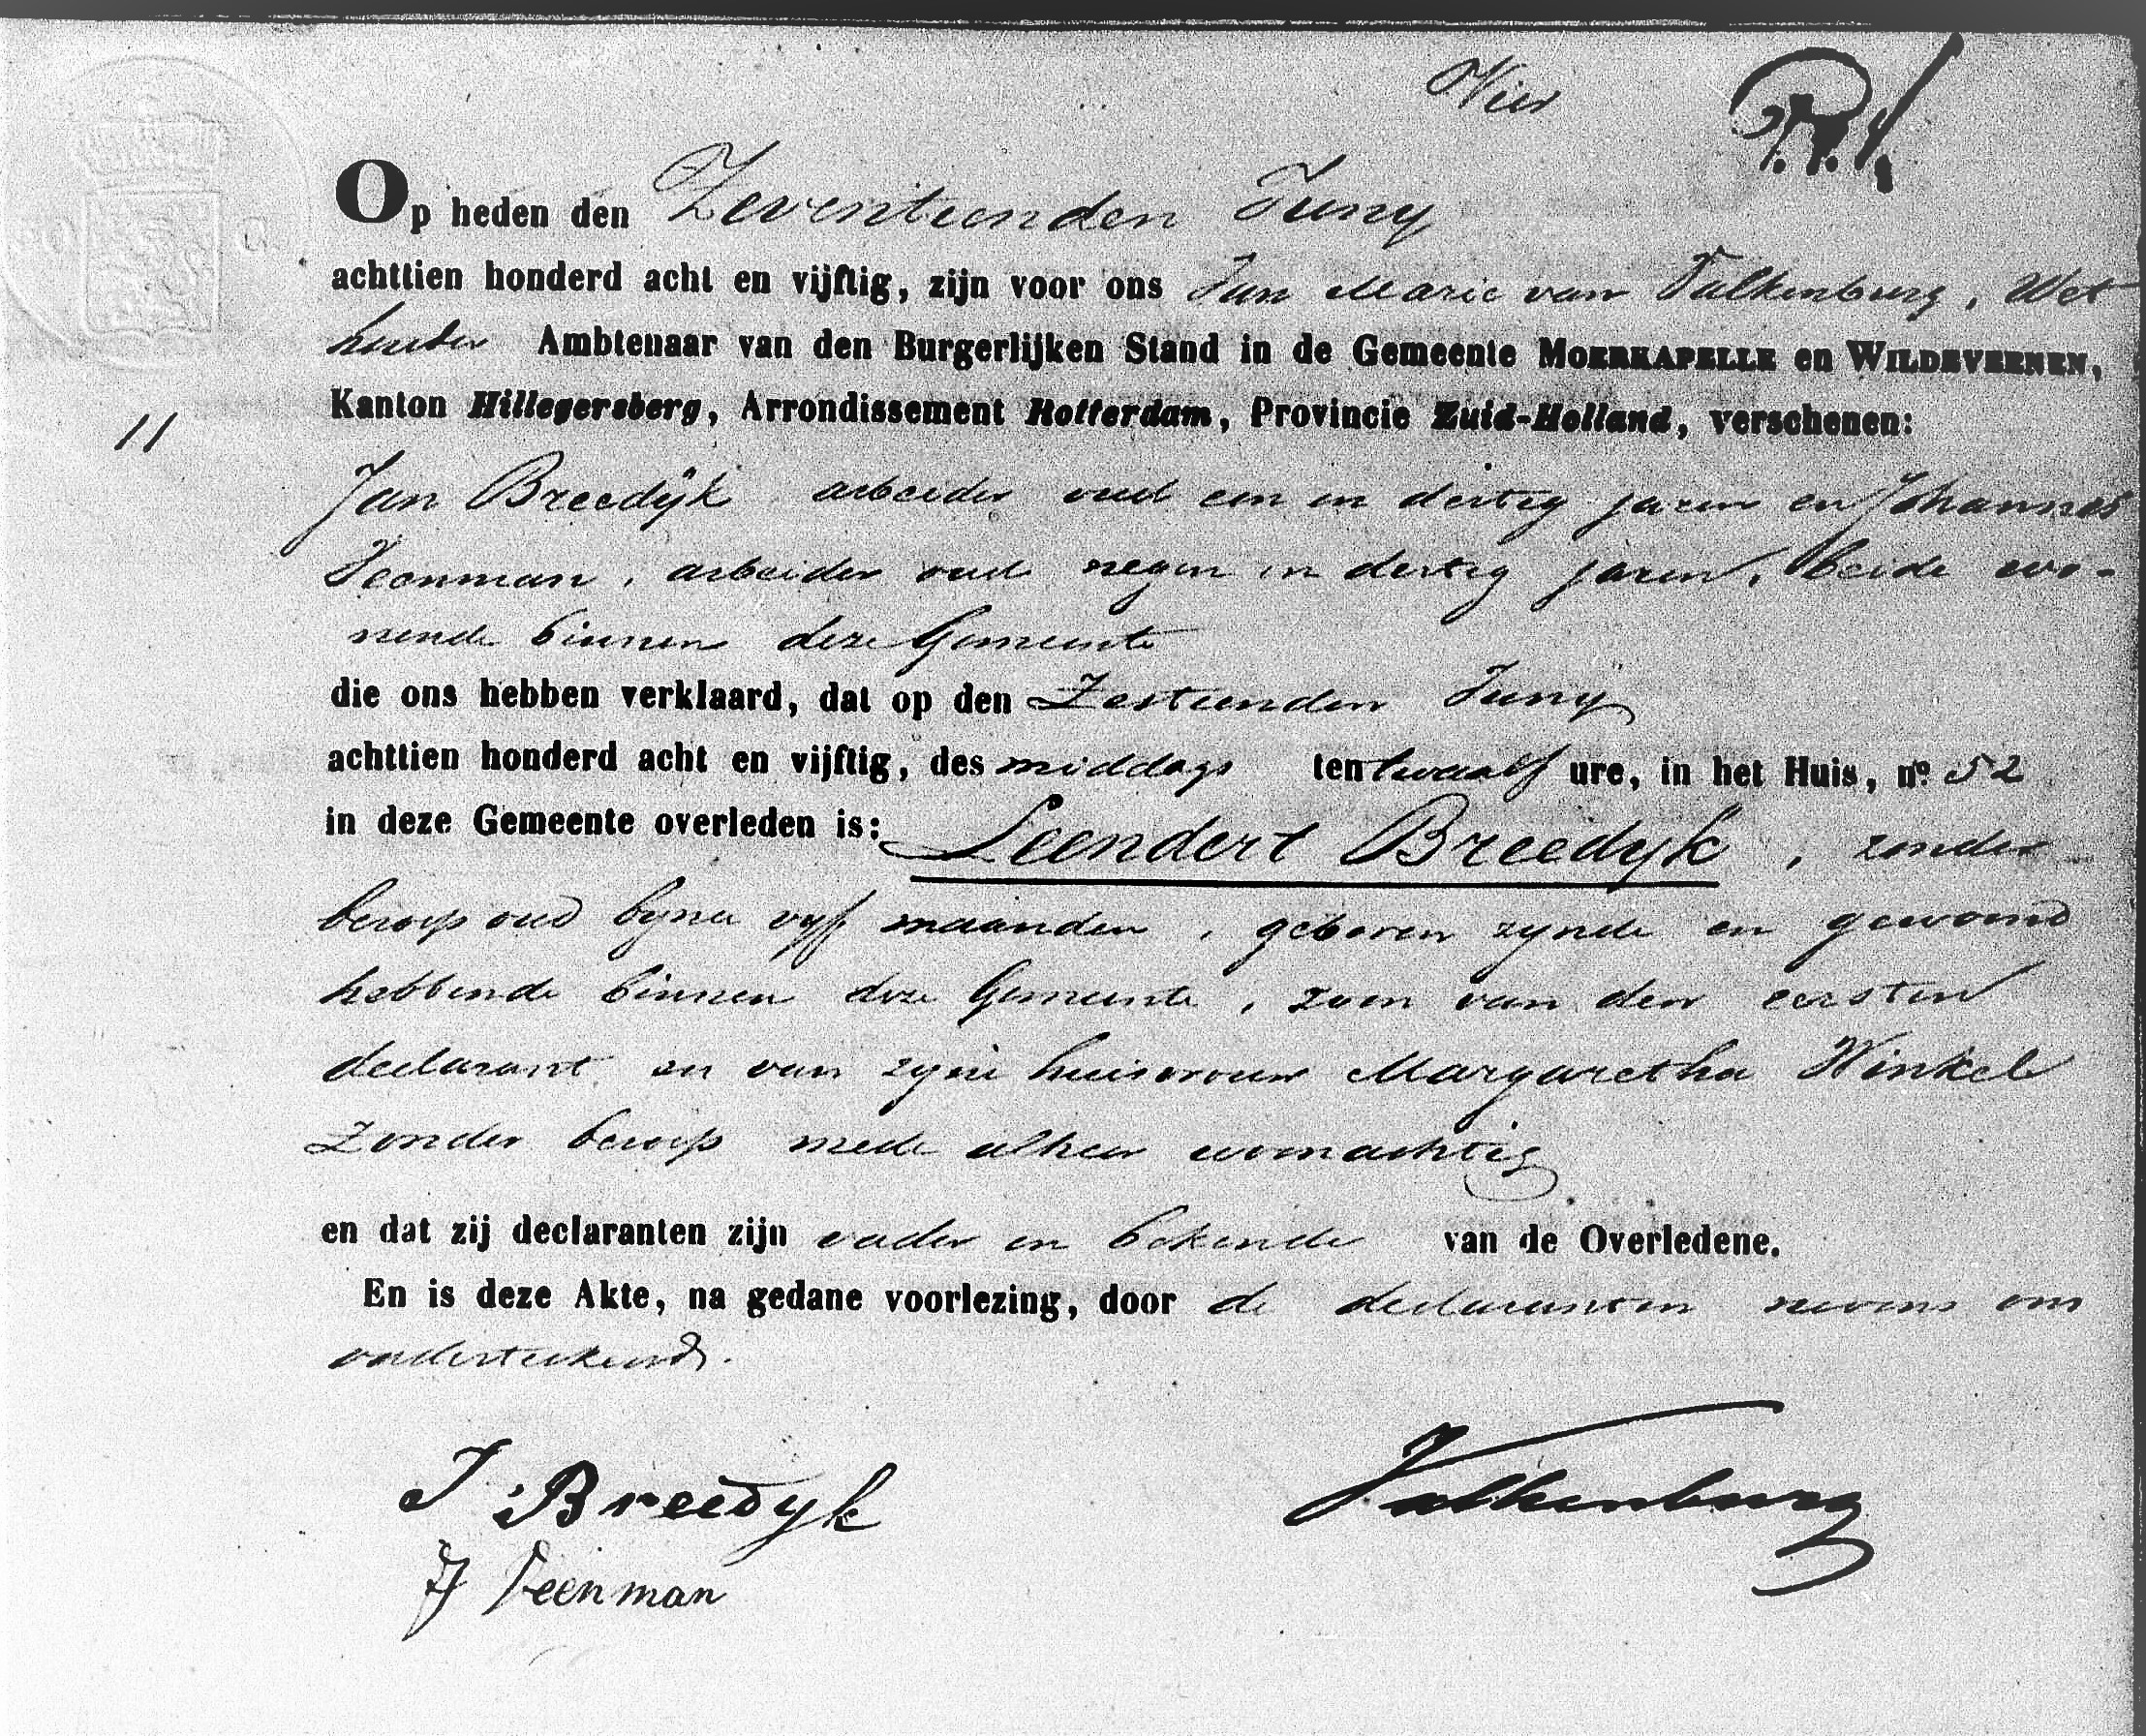 Vier
Op heden den Zeventienden Juny
achttien honderd acht en vijftig, zijn voor ons Jan Marie van Valkenburg, Wet
houder Ambtenaar van den Burgerlijken Stand in de Gemeente MOERKAPELLE en WILDEVEENEN,
Kanton Hillegersberg, Arrondissement Rotterdam, Provincie Zuid-Holland, verschenen:
11
Jan Breedÿk arbeider oud een en dertig jaren en Johannes
Veenman, arbeider oud negen en dertig jaren, beide wo-
nende binnen deze Gemeente
die ons hebben verklaard, dat op den Zestienden Juny
achttien honderd acht en vijftig, des middags ten twaalf ure, in het Huis, no. 52
in deze Gemeente overleden is: Leendert Breedyk, zonder
beroep oud byna vyf maanden, geboren zynde en gewoond
hebbende binnen deze Gemeente, zoon van den eersten
declarant en van zyne huisvrouw Margaretha Winkel
zonder beroep mede alhier woonachtig
en dat zij declaranten zijn vader en bekende van de Overledene.
En is deze Akte, na gedane voorlezing, door de declaranten nevens ons
onderteekend.
J Breedyk
Valkenburg
J Veenman